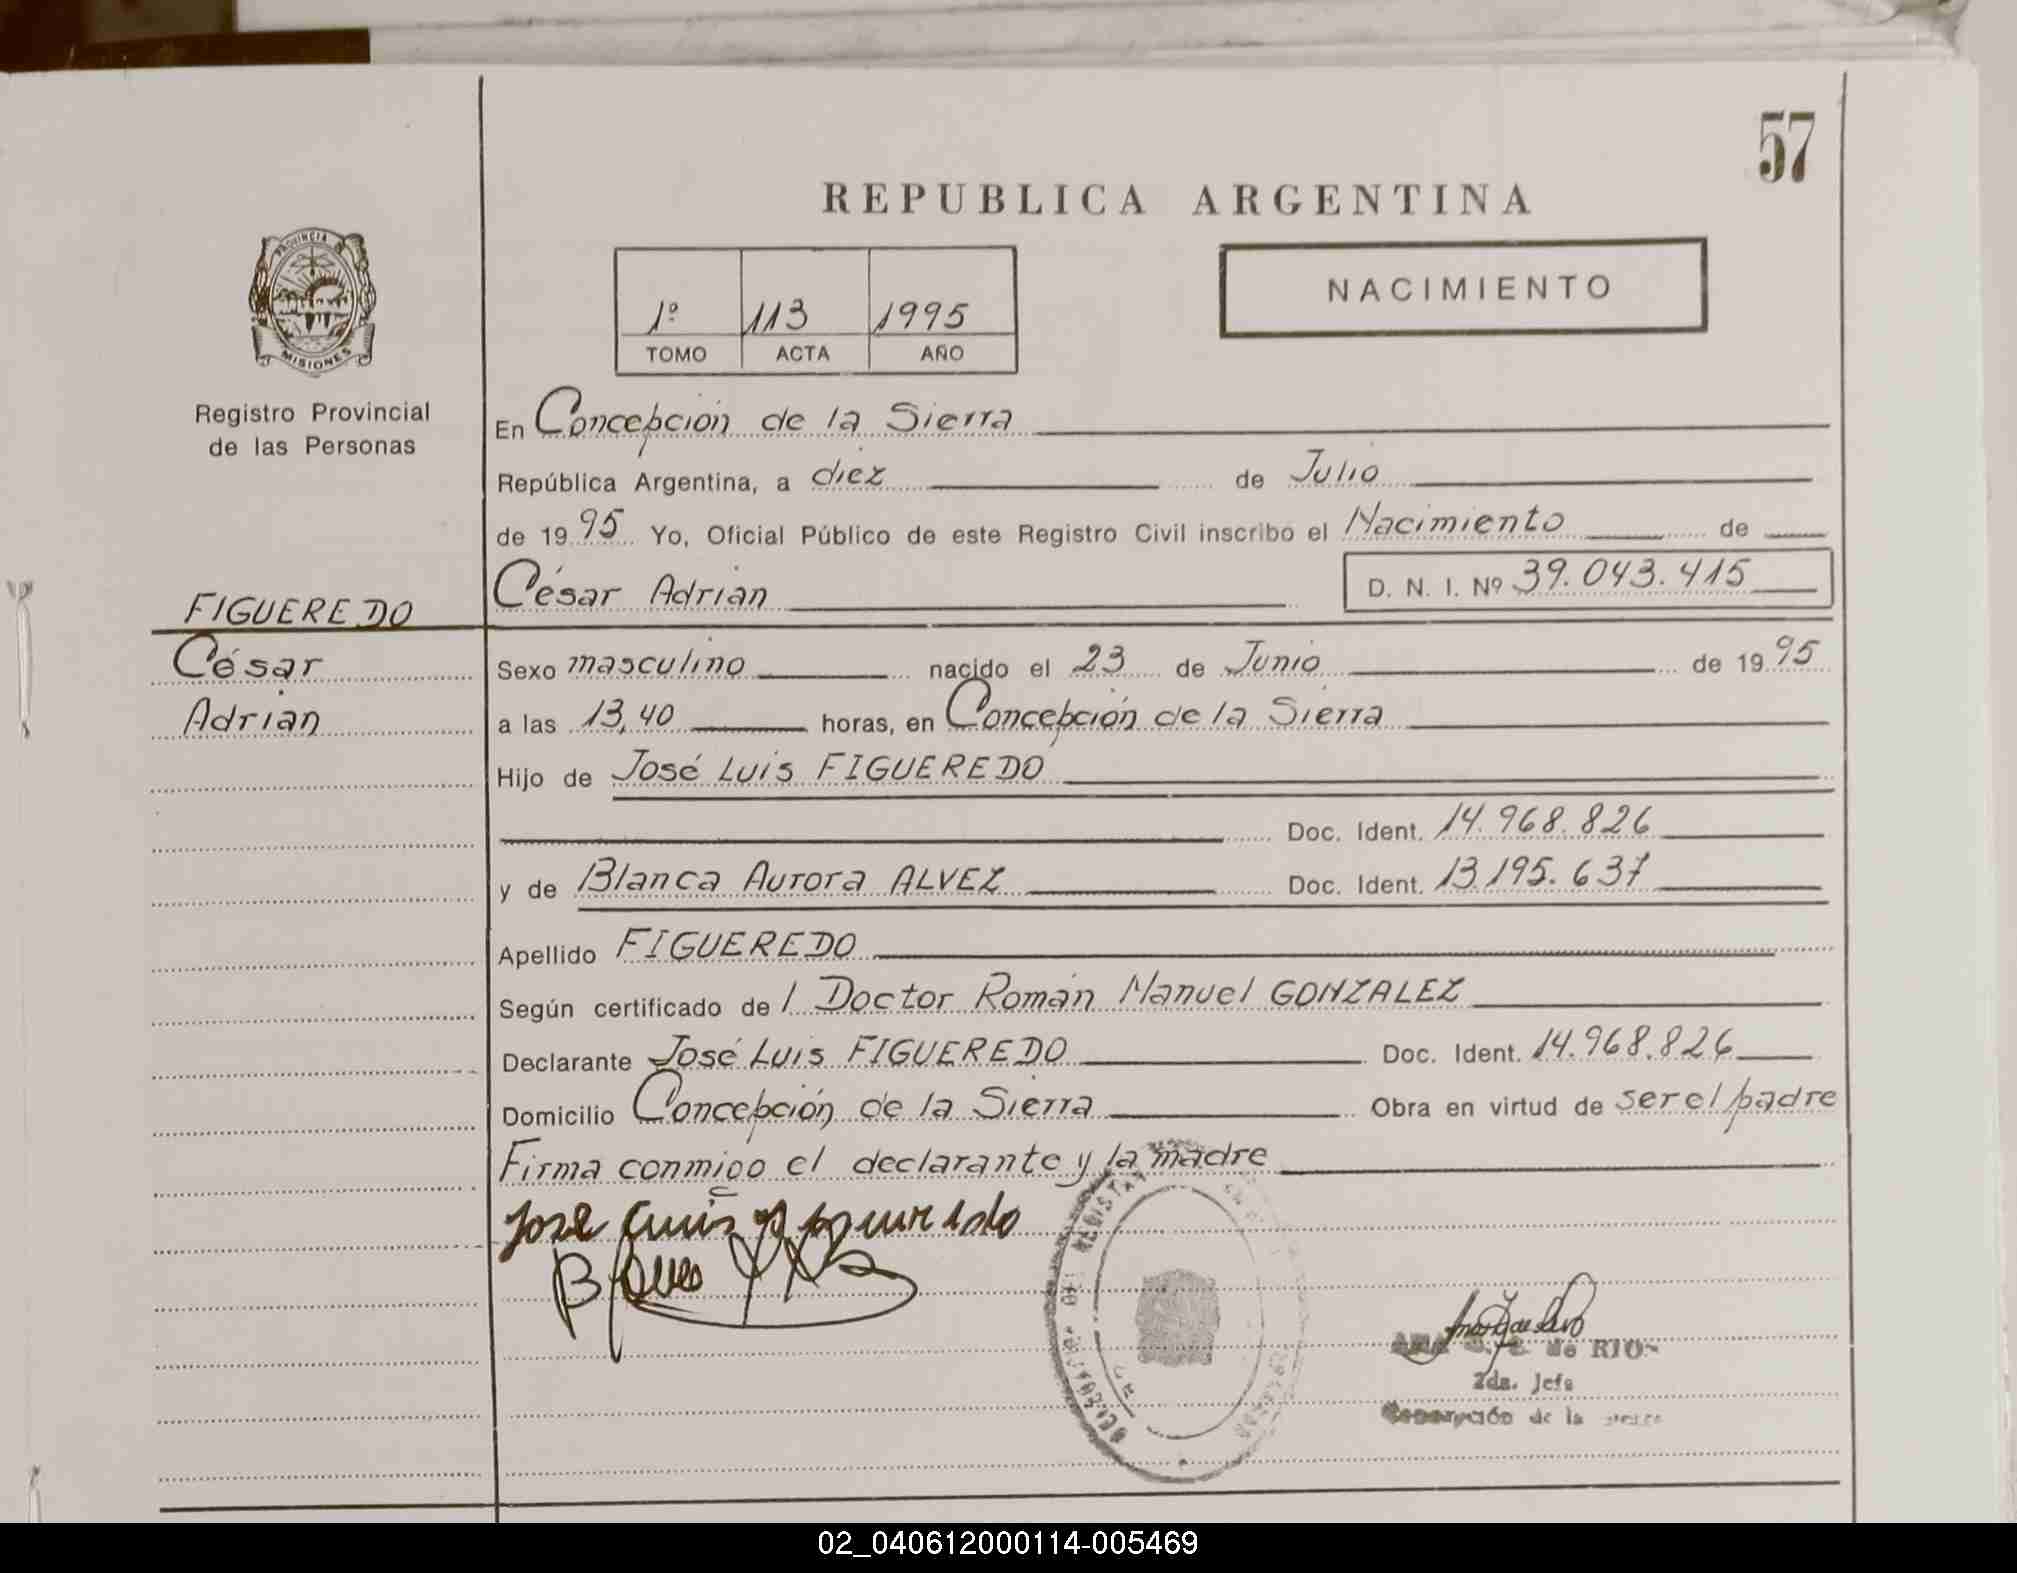 57
REPUBLICA ARGENTINA
PROVINCIA DE
MISIONES
Registro Provincial
de las Personas
1º 113 1995
TOMO ACTA AÑO
NACIMIENTO
En Concepción de la Sierra
República Argentina, a diez de Julio
de 1995 Yo, Oficial Público de este Registro Civil inscribo el Nacimiento de
César Adrián D. N. I. Nº 39.043.415
FIGUEREDO
César
Adrián
Sexo masculino nacido el 23 de Junio de 1995
a las 13,40 horas, en Concepción de la Sierra
Hijo de José Luis FIGUEREDO
Doc. Ident. 14.968.826
y de Blanca Aurora ALVEZ Doc. Ident. 13.195.637
Apellido FIGUEREDO
Según certificado de l Doctor Román Manuel GONZALEZ
Declarante José Luis FIGUEREDO Doc. Ident. 14.968.826
Domicilio Concepción de la Sierra Obra en virtud de ser el padre
Firma conmigo el declarante y la madre
José Luis Figueredo
de RIOS
2da. Jefe
Concepción de la Sierra
02_040612000114-005469